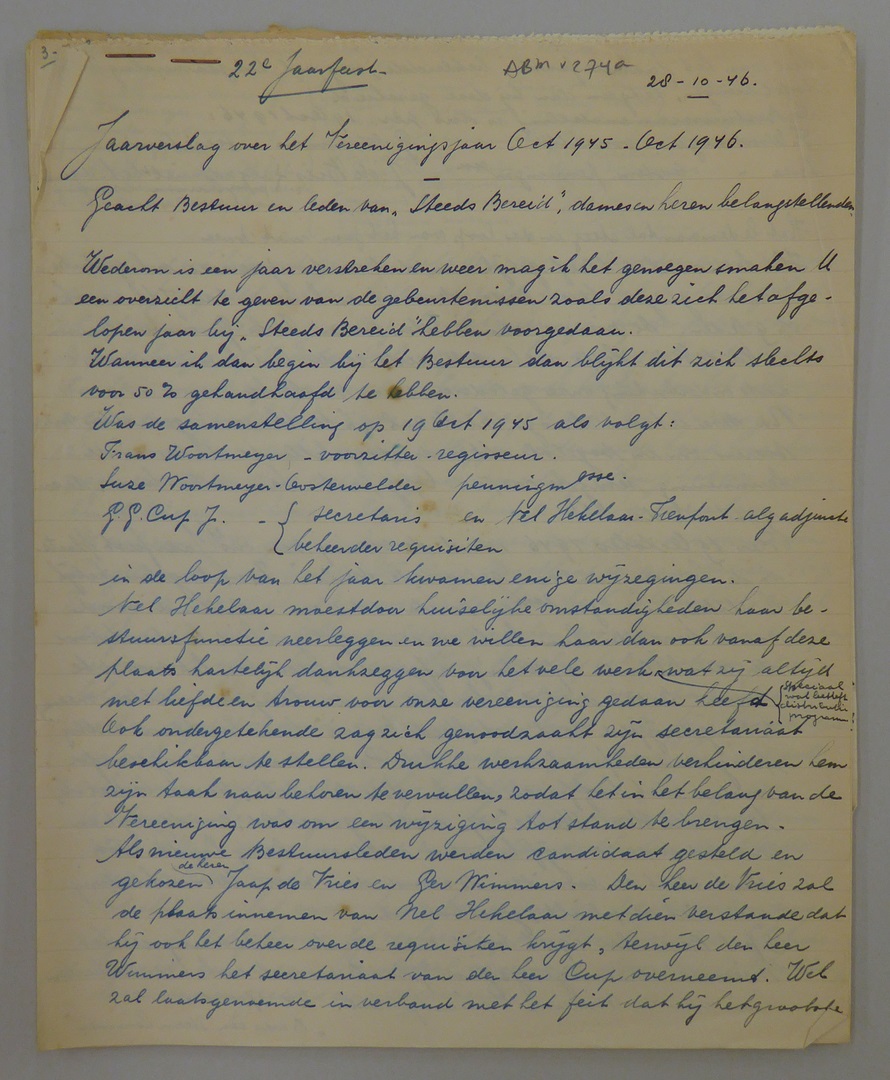 3-
22e Jaarfeest-
ABM v 274a
28-10-46.
Jaarverslag over het Vereenigingsjaar Oct 1945 - Oct 1946.
Geacht Bestuur en leden van „Steeds Bereid", dames en heren belangstellenden
Wederom is een jaar verstreken en weer mag ik het genoegen smaken U
een overzicht te geven van de gebeurtenissen zoals deze zich het afge-
lopen jaar bij „Steeds Bereid" hebben voorgedaan.
Wanneer ik dan begin bij het Bestuur dan blijkt dit zich slechts
voor 50% gehandhaafd te hebben.
Was de samenstelling op 19 Oct 1945 als volgt:
Frans Woortmeyer - voorzitter - regisseur.
Suze Woortmeyer-Oosterwelder penningmesse.
G.G. Cup Jr. - { secretaris en Nel Hekelaar-Tienfont alg adjuncte
beheerder requisiten
in de loop van het jaar kwamen enige wijzegingen.
Nel Hekelaar moest door huiselijke omstandigheden haar be-
stuursfunctie neerleggen en we willen haar dan ook vanaf deze
plaats hartelijk dankzeggen voor het vele werk, wat zij altijd
met liefde en trouw voor onze vereeniging gedaan heeft
{ speciaal
wat betreft
distributie
program!
Ook ondergetekende zag zich genoodzaakt zijn secretariaat
beschikbaar te stellen. Drukke werkzaamheden verhinderen hem
zijn taak naar behoren te vervullen, zodat het in het belang van de
Vereeniging was om een wijziging tot stand te brengen.
Als nieuwe Bestuursleden werden candidaat gesteld en
de heren
gekozen Jaap de Vries en Ger Wimmers. Den heer de Vries zal
de plaats innemen van Nel Hekelaar met dien verstande dat
hij ook het beheer over de requisiten krijgt, terwijl den heer
Wimmers het secretariaat van den heer Cup overneemt. Wel
zal laatsgenoemde in verband met het feit dat hij het grootste